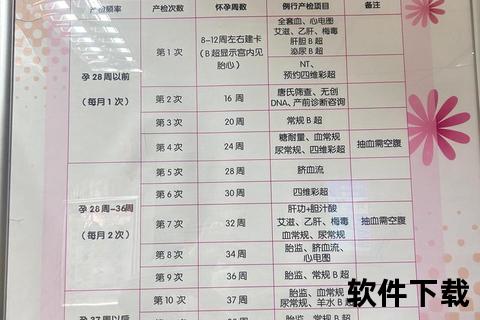 产检频率 产检次数 怀孕周数 例行产检项目 备注
孕 28 周以前
(每月 1 次)
第 1 次
8-12周左右建卡
(B 超显示宫内见
胎心)
全套血、心电图
艾滋、乙肝、梅毒
肝胆 B 超
泌尿 B 超
NT、
预约四维彩超
第 2 次 16 周
唐氏筛查、无创
DNA、产前诊断咨询
第 3 次 20 周 常规 B 超
第 4 次 24 周
糖耐量、血常规
尿常规、四维彩超
抽血需空腹
孕 28 周-36周
(每月 2 次)
第 5 次 28 周 脐血流
第 6 次 30 周 四维彩超
第 7 次 32 周
肝功+胆汁酸
艾滋、乙肝、梅毒
血常规、尿常规
抽血需空腹
第 8 次 34 周
胎监、脐血流、
心电图
第 9 次 36 周 胎监、常规 B 超
孕 37 周以后
第 10 次 37 周
胎监、血常规
尿常规、羊水 B 超
软件下载